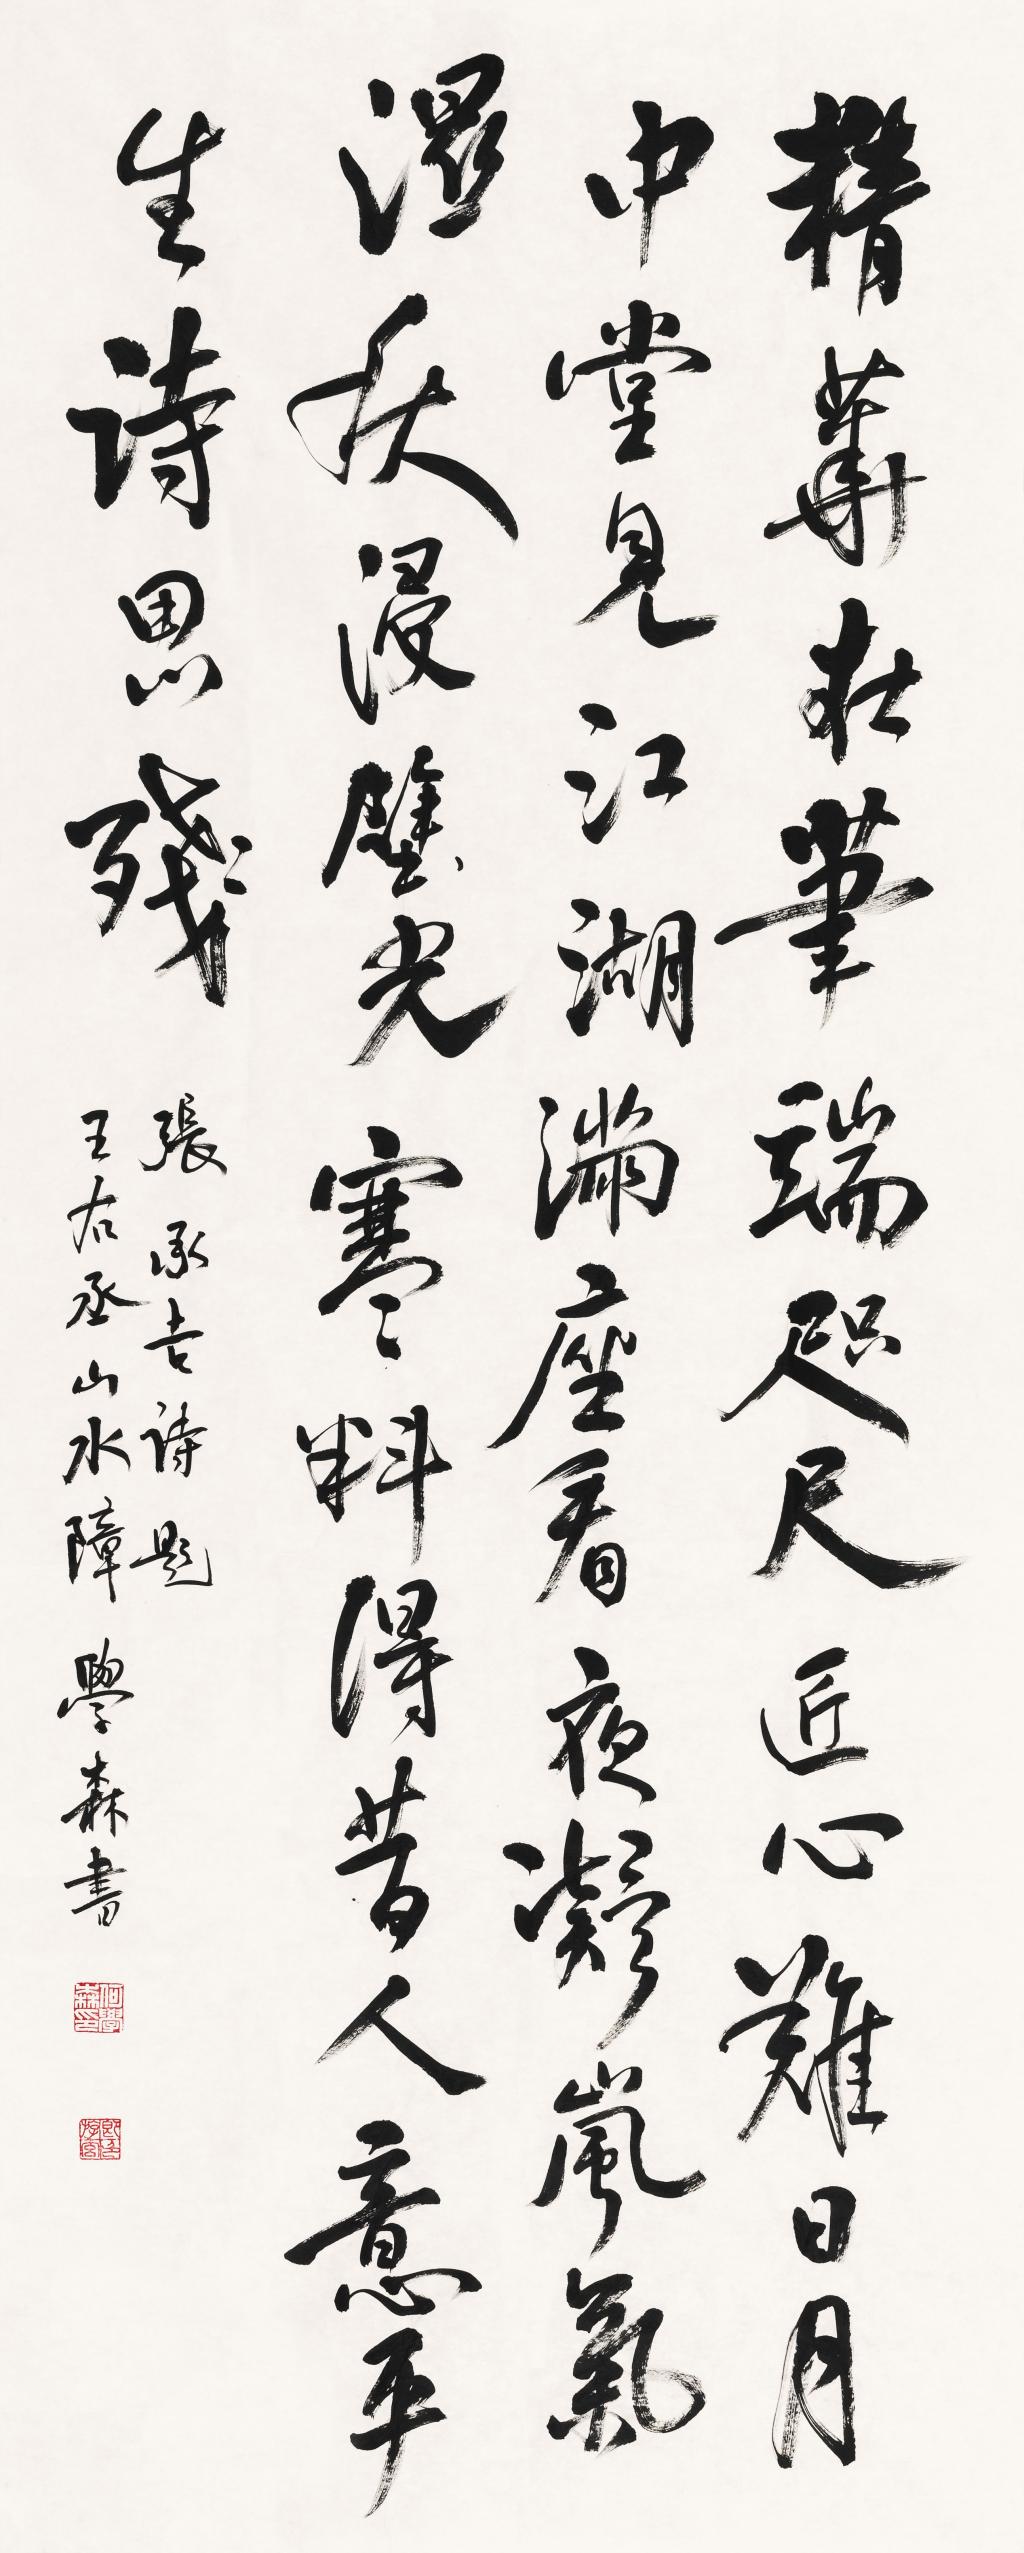 精華在筆端咫尺近心難日月
中堂見江湖滿座看夜凝嵐氣
濕秋浸壁光寒料得昔人意平
生詩思殘
張承吉詩題
王右丞山水障 學森書
何學森印